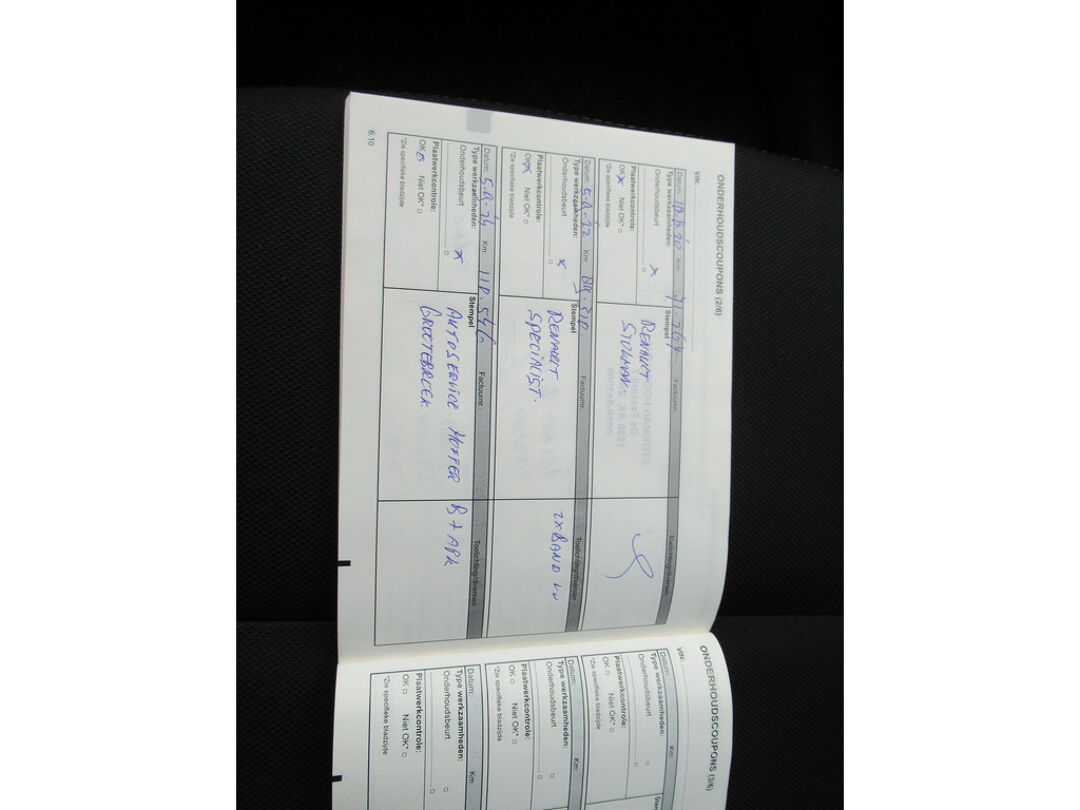 ONDERHOUDSCOUPONS (2/6)
VIN:
Datum: Km: 71.264 Factuurnr.:
Type werkzaamheden: Stempel Toelichting/diversen
Onderhoudsbeurt x
RENAULT
Plaatwerkcontrole:
OK x Niet OK* □
*Zie specifieke bladzijde
Datum: 5-9-22 Km: Factuurnr.:
Type werkzaamheden: Stempel Toelichting/diversen
Onderhoudsbeurt x
RENAULT
SPECIALIST.
2x BAND
Plaatwerkcontrole:
OK x Niet OK* □
*Zie specifieke bladzijde
Datum: 5-9-24 Km: 118.546 Factuurnr.:
Type werkzaamheden: Stempel Toelichting/diversen
Onderhoudsbeurt x
AUTOSERVICE HOFFER B + APK
GROOTEBROEK.
Plaatwerkcontrole:
OK Niet OK* □
*Zie specifieke bladzijde
6.10
ONDERHOUDSCOUPONS (3/6)
VIN:
Datum: Km:
Type werkzaamheden:
Onderhoudsbeurt □
Plaatwerkcontrole:
OK □ Niet OK* □
*Zie specifieke bladzijde
Datum: Km:
Type werkzaamheden:
Onderhoudsbeurt □
Plaatwerkcontrole:
OK □ Niet OK* □
*Zie specifieke bladzijde
Datum: Km:
Type werkzaamheden:
Onderhoudsbeurt □
Plaatwerkcontrole:
OK □ Niet OK* □
*Zie specifieke bladzijde